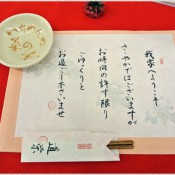 我家へようこそ
ささやかではございますが
お時間の許す限り
ごゆっくりと
お過ごし下さいませ